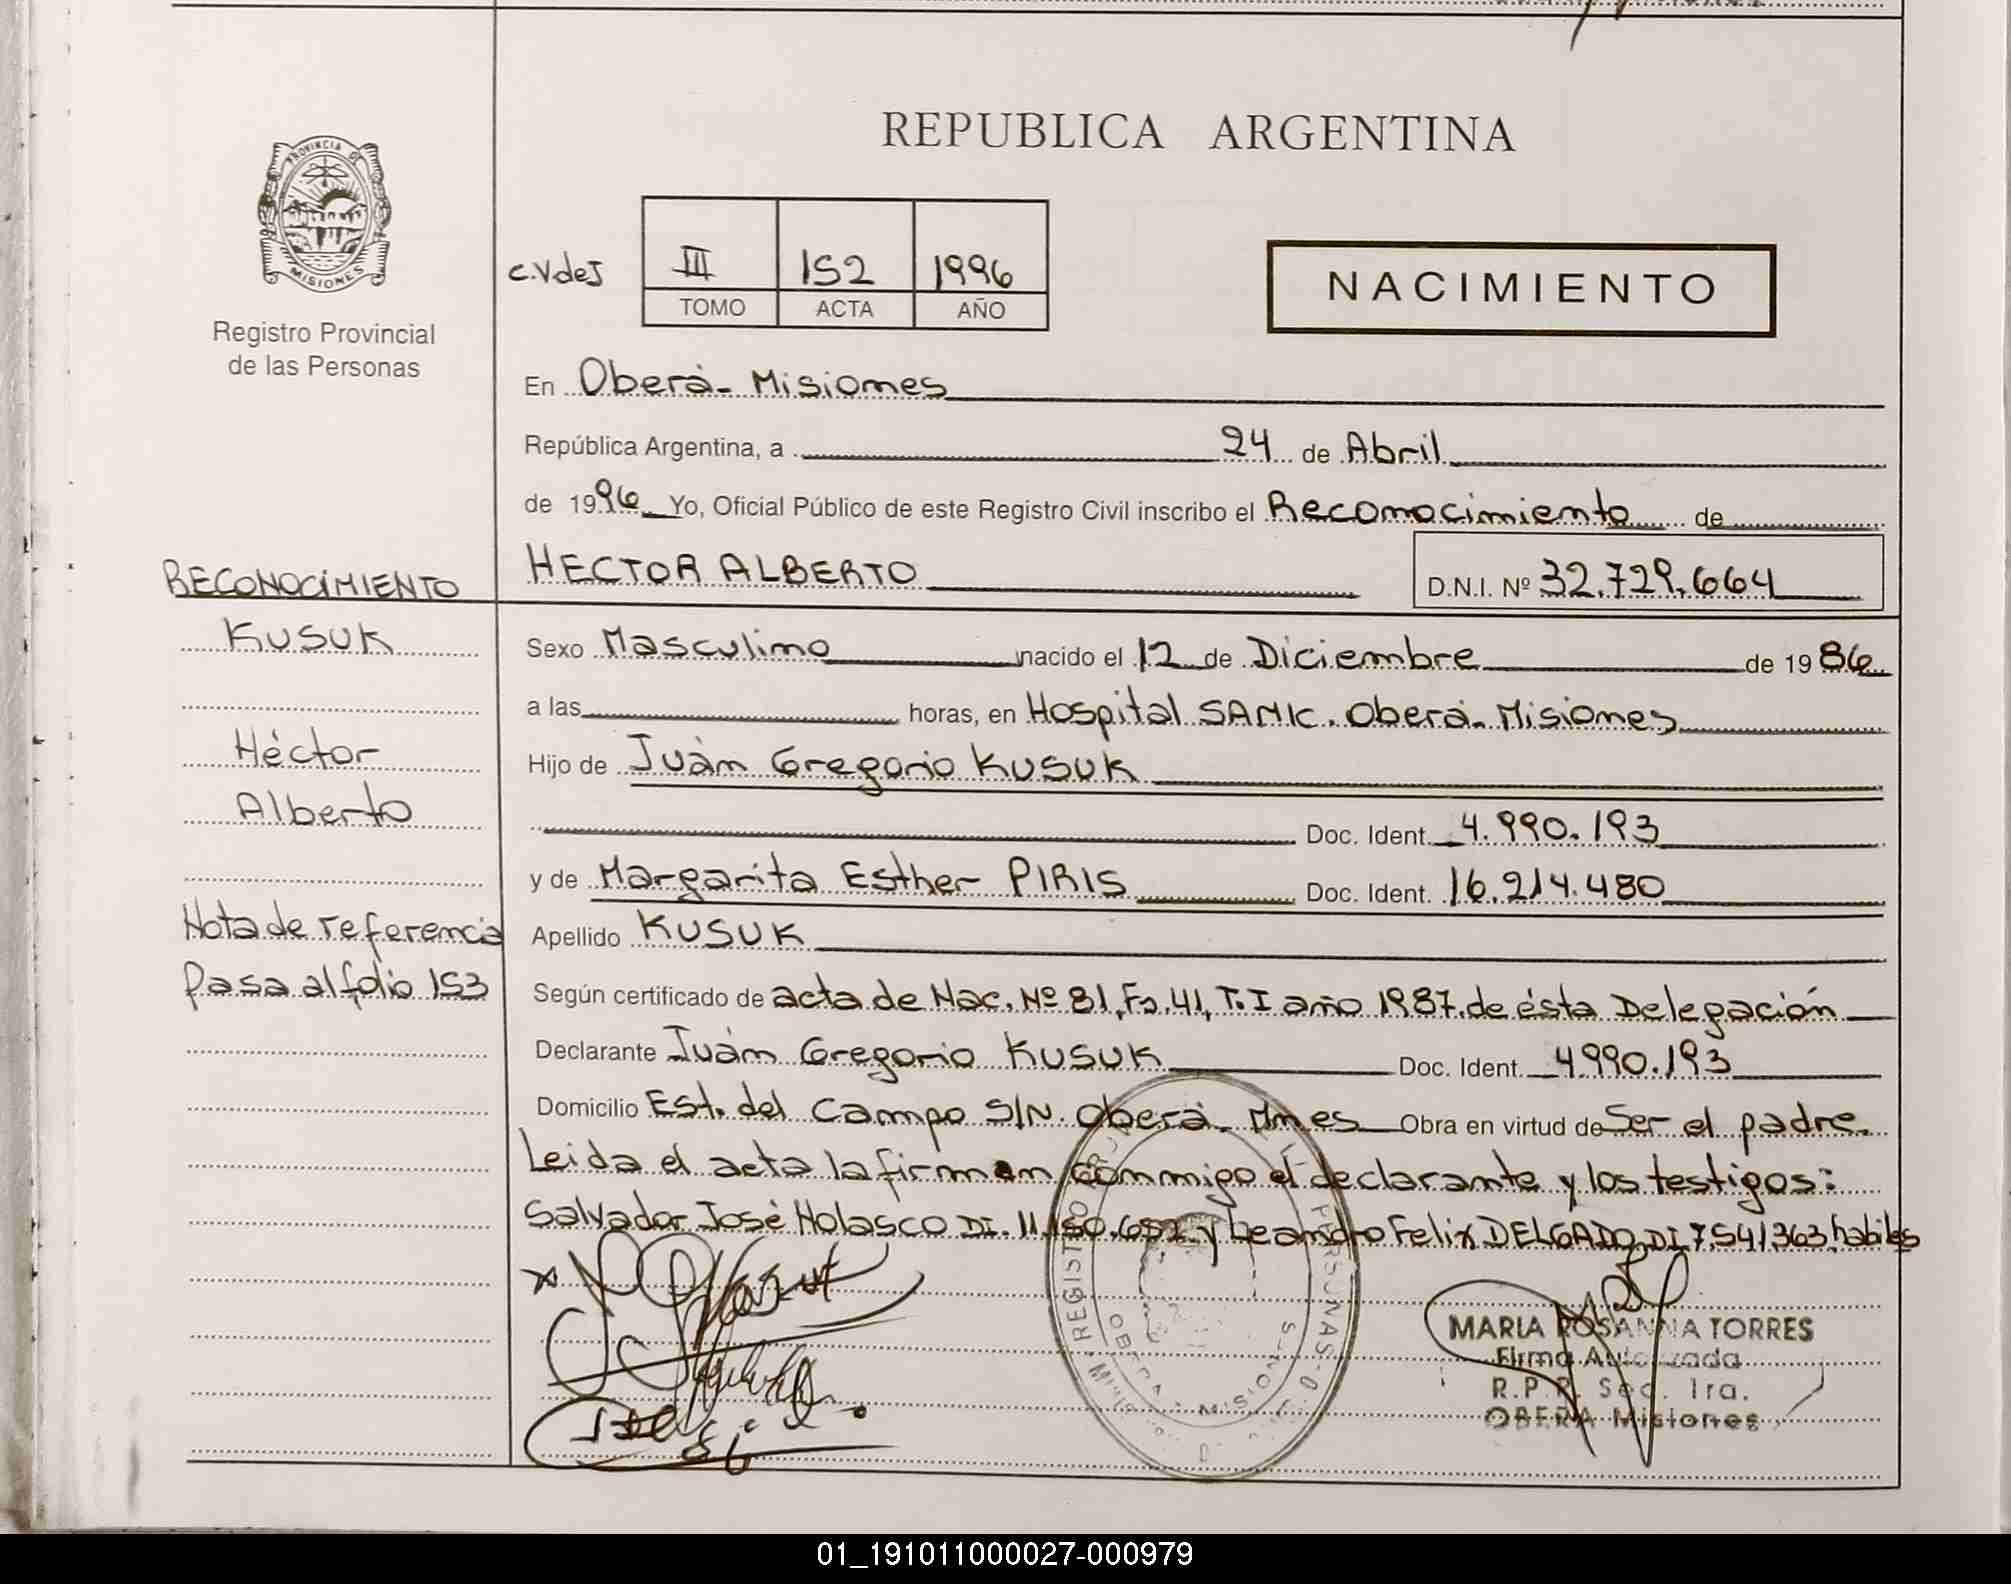 REPUBLICA ARGENTINA
PROVINCIA DE
MISIONES
Registro Provincial
de las Personas
C.V de J
III 152 1996
TOMO ACTA AÑO
NACIMIENTO
En Oberá - Misiones
República Argentina, a 24 de Abril
de 1996 Yo, Oficial Público de este Registro Civil inscribo el Reconocimiento de
RECONOCIMIENTO
HECTOR ALBERTO D.N.I. Nº 32.729.664
KUSUK
Sexo Masculino nacido el 12 de Diciembre de 1986
a las horas, en Hospital SAMIC. Oberá - Misiones
Héctor
Hijo de Juán Gregorio KUSUK
Alberto
Doc. Ident. 4.990.193
y de Margarita Esther PIRIS Doc. Ident. 16.214.480
Nota de referencia
Apellido KUSUK
Pasa al folio 153
Según certificado de acta de Nac. Nº 81, Fo. 41, T. I año 1987. de ésta Delegación
Declarante Juán Gregorio KUSUK Doc. Ident. 4.990.193
Domicilio Est. del Campo S/N. Oberá - Mnes Obra en virtud de Ser el padre.
Leida el acta la firman conmigo el declarante y los testigos:
Salvador José NOLASCO DI. 11.150.652 y Leandro Felix DELGADO DI 7.541.363 habiles
MARIA ROSANNA TORRES
Firma Autorizada
R.P.P. Sec. 1ra.
OBERA Misiones
REGISTRO PERSONAS
OBERA - MISIONES
01_191011000027-000979